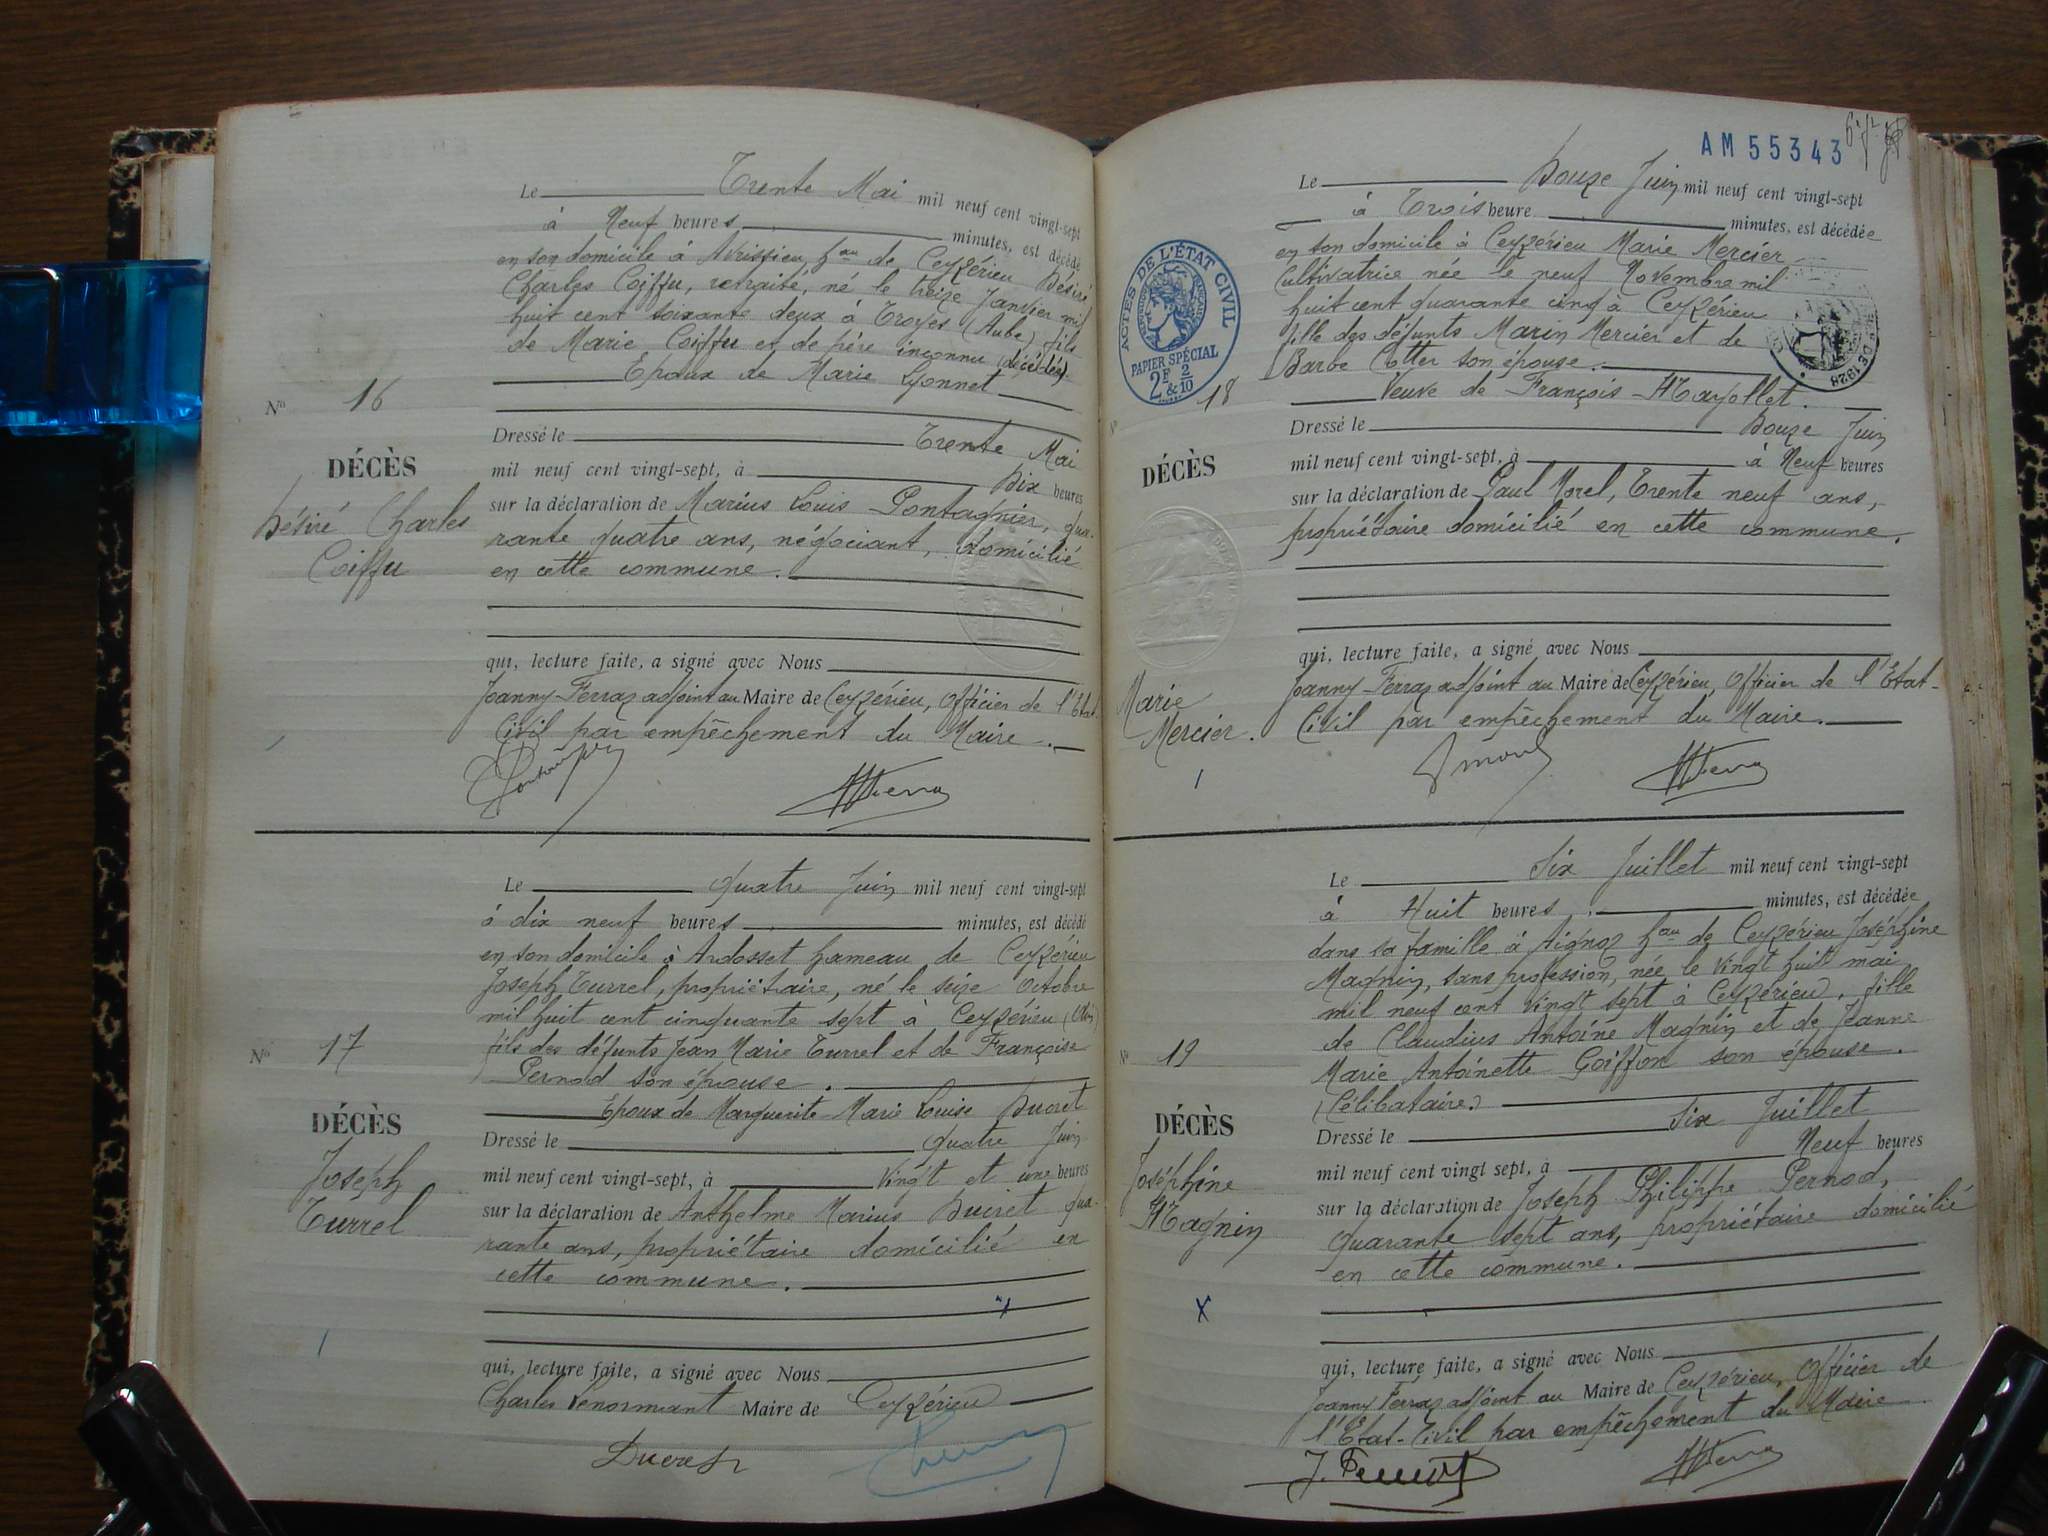 Le Trente Mai mil neuf cent vingt-sept
à Neuf heures minutes, est décédé
en son domicile à Avrissieu, hau de Ceyzérieu Désiré
Charles Coiffu, retraité, né le treize Janvier mil
huit cent soixante deux à Troyes (Aube) fils
de Marie Coiffu et de père inconnu (décédés).
Epoux de Marie Lyonnet
No 16
DÉCÈS
Désiré Charles
Coiffu
Dressé le Trente Mai
mil neuf cent vingt-sept, à Dix heures
sur la déclaration de Marius Louis Pontagnier, qua-
rante quatre ans, négociant, domicilié
en cette commune.
qui, lecture faite, a signé avec Nous
Joanny-Ferraz adjoint au Maire de Ceyzérieu, Officier de l'Etat-
Civil par empêchement du Maire.
Le quatre Juin mil neuf cent vingt-sept
à dix neuf heures minutes, est décédé
en son domicile à Ardosset hameau de Ceyzérieu
Joseph Turrel, propriétaire, né le seize Octobre
mil huit cent cinquante sept à Ceyzérieu (Ain)
fils des défunts Jean Marie Turrel et de Françoise
Pernod son épouse.
Epoux de Marguerite Marie Louise Ducret
No 17
DÉCÈS
Joseph
Turrel
Dressé le quatre Juin
mil neuf cent vingt-sept, à Vingt et une heures
sur la déclaration de Anthelme Marius Ducret qua-
rante ans, propriétaire domicilié en
cette commune.
qui, lecture faite, a signé avec Nous
Charles Lenormant Maire de Ceyzérieu
Ducret
AM 55343
Le Douze Juin mil neuf cent vingt-sept
à Trois heure minutes, est décédée
en son domicile à Ceyzérieu Marie Mercier
Cultivatrice née le neuf Novembre mil
huit cent quarante cinq à Ceyzérieu
fille des défunts Marin Mercier et de
Barbe Cotter son épouse.
Veuve de François Mayollet.
ACTES DE L'ÉTAT CIVIL
PAPIER SPÉCIAL
2F & 2/10
DE 1928
18
DÉCÈS
Marie
Mercier.
Dressé le Douze Juin
mil neuf cent vingt-sept, à à Neuf heures
sur la déclaration de Paul Morel, Trente neuf ans,
propriétaire domicilié en cette commune.
qui, lecture faite, a signé avec Nous
Joanny-Ferraz adjoint au Maire de Ceyzérieu, Officier de l'Etat-
Civil par empêchement du Maire.
Le Six Juillet mil neuf cent vingt-sept
à Huit heures minutes, est décédée
dans sa famille à Aignoz hau de Ceyzérieu Joséphine
Magnin, sans profession, née le Vingt huit mai
mil neuf cent Vingt sept à Ceyzérieu, fille
de Claudius Antoine Magnin et de Jeanne
Marie Antoinette Goiffon son épouse.
(Célibataire.)
No 19
DÉCÈS
Joséphine
Magnin
Dressé le Six Juillet
mil neuf cent vingt sept, à Neuf heures
sur la déclaration de Joseph Philippe Pernod,
quarante sept ans, propriétaire domicilié
en cette commune.
qui, lecture faite, a signé avec Nous
Joanny Ferraz adjoint au Maire de Ceyzérieu, Officier de
l'Etat-Civil par empêchement du Maire